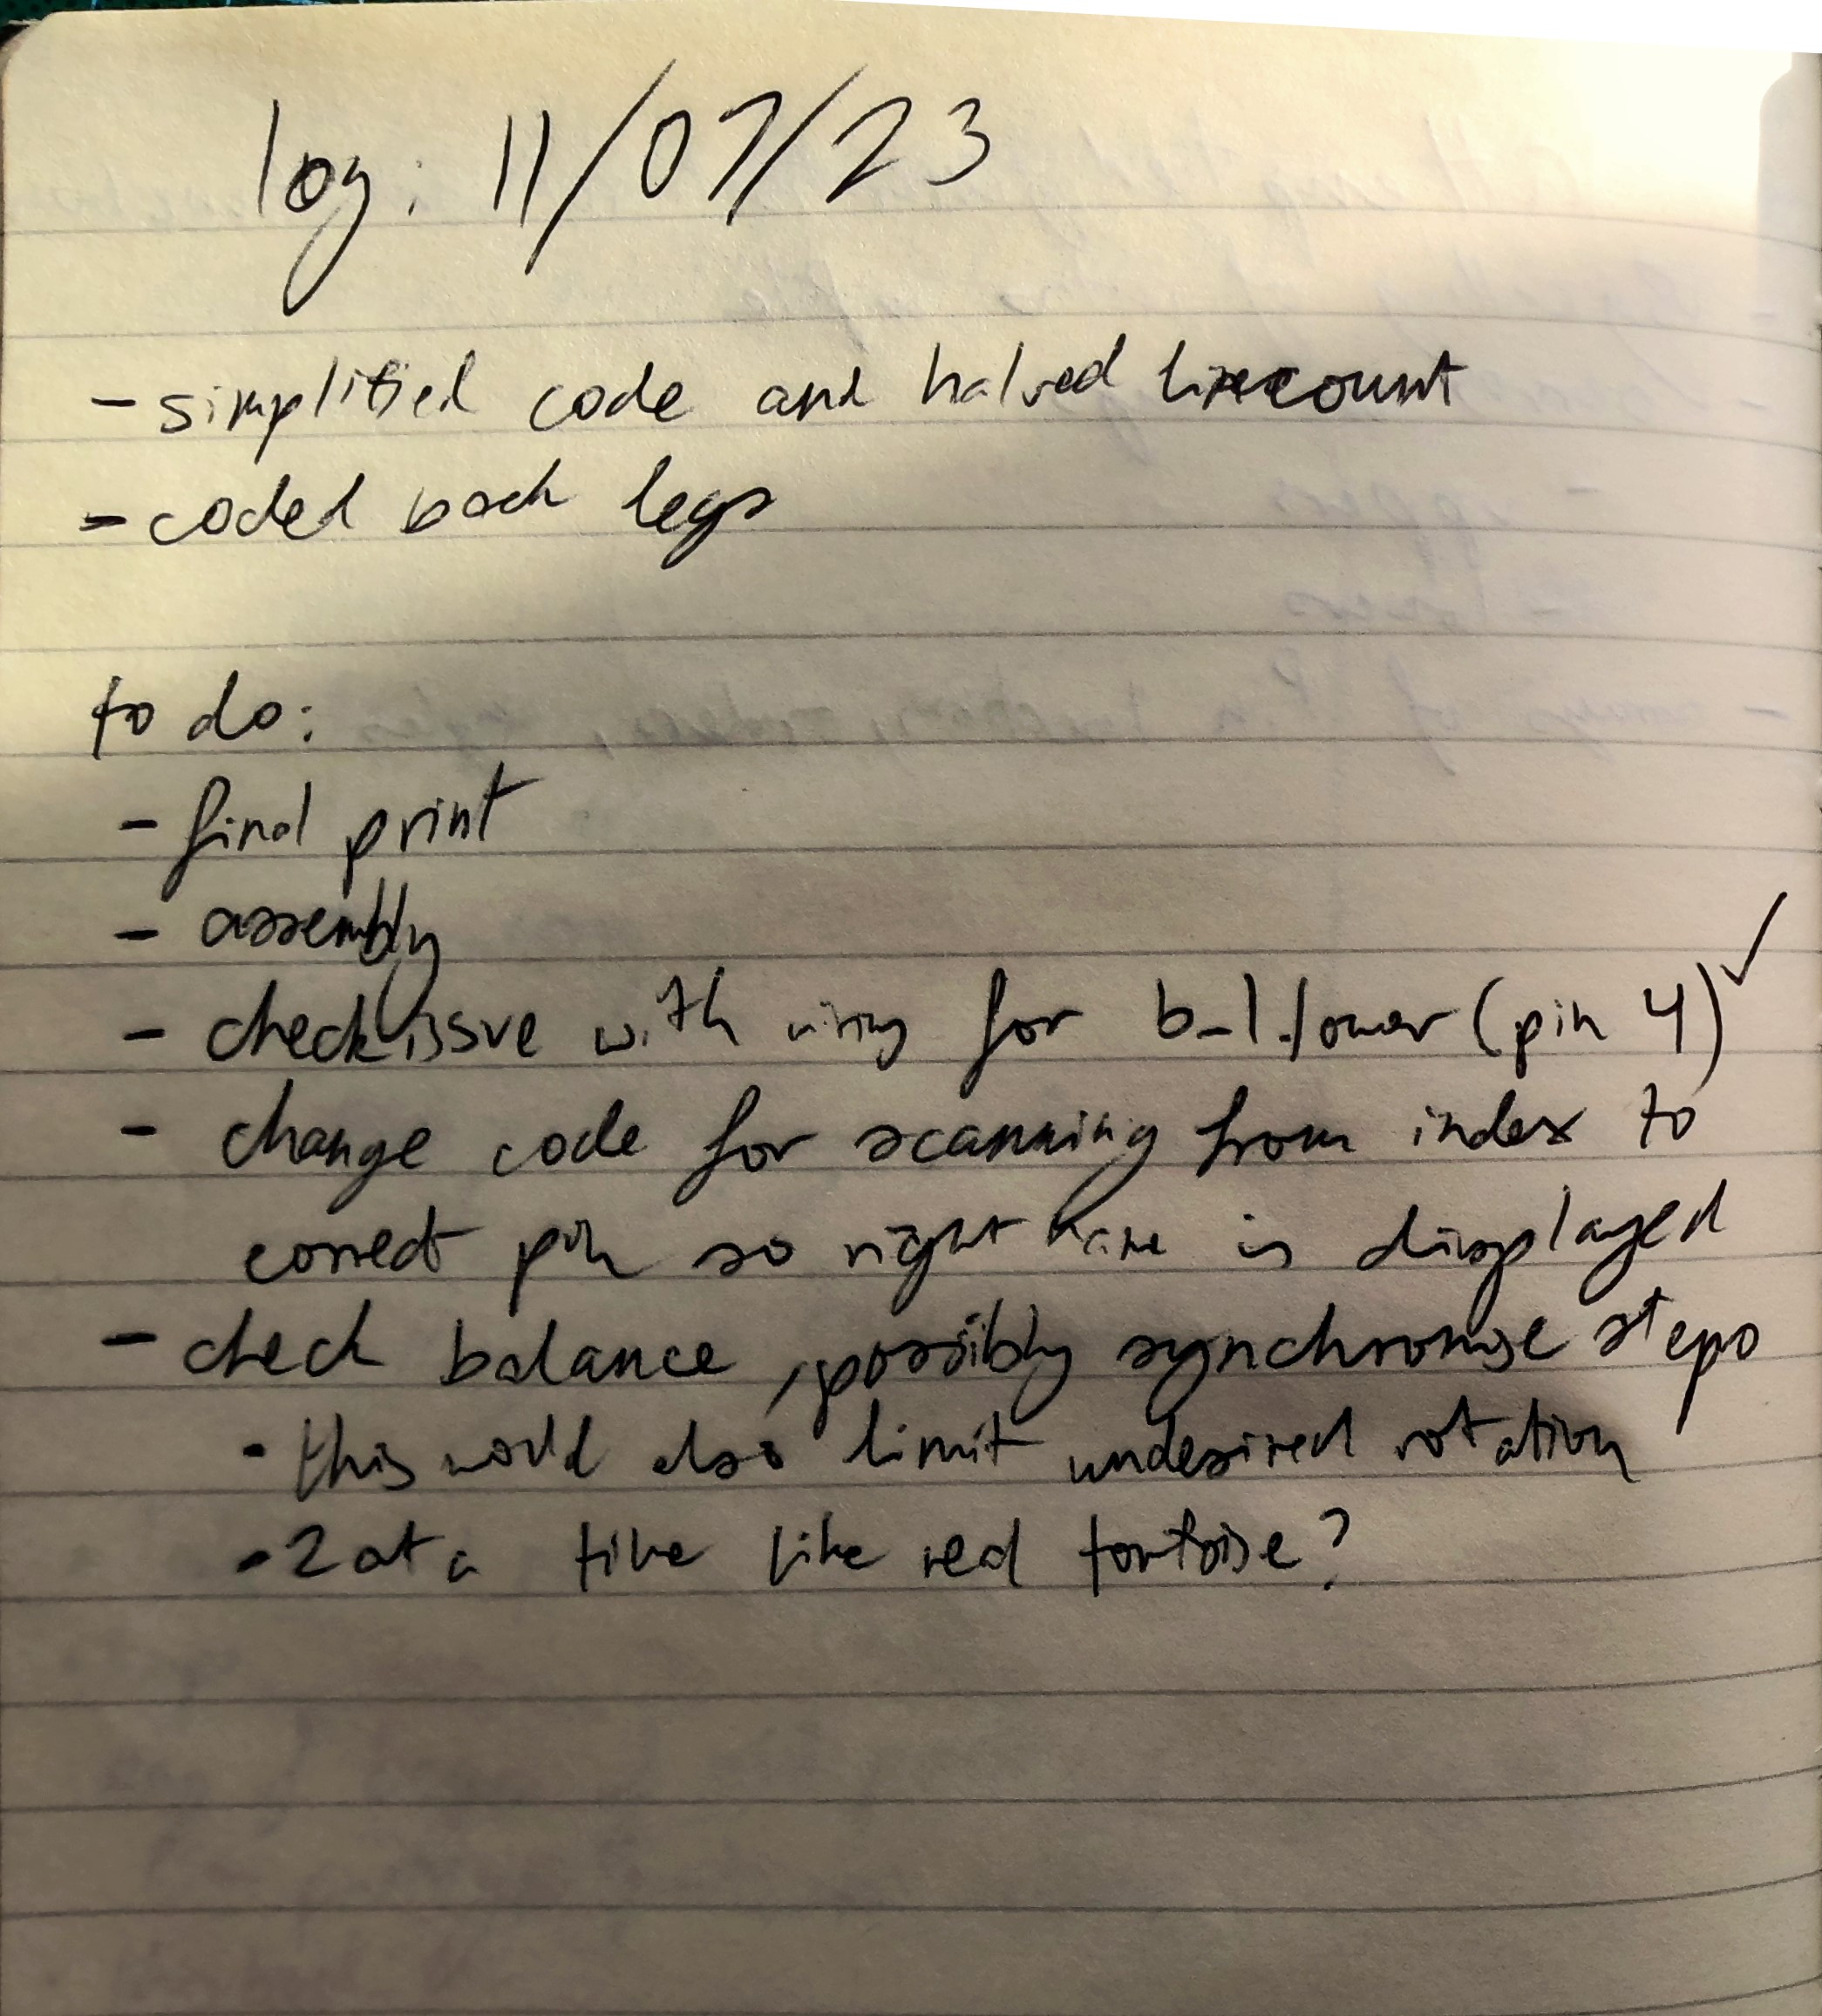 log: 11/07/23
- simplified code and halved linecount
- coded back legs
to do:
- final print
- assembly
- check issue with wiring for b-l-lower (pin 4) ✓
- change code for scanning from index to
correct pin so right name is displayed
- check balance, possibly synchronise steps
- this would also limit undesired rotation
- 2 at a time like red tortoise?